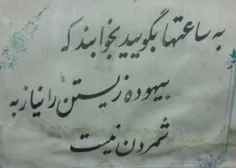 به ساعتها بگویید بخوابند که
بیهوده زیستن را نیاز به
شمردن نیست